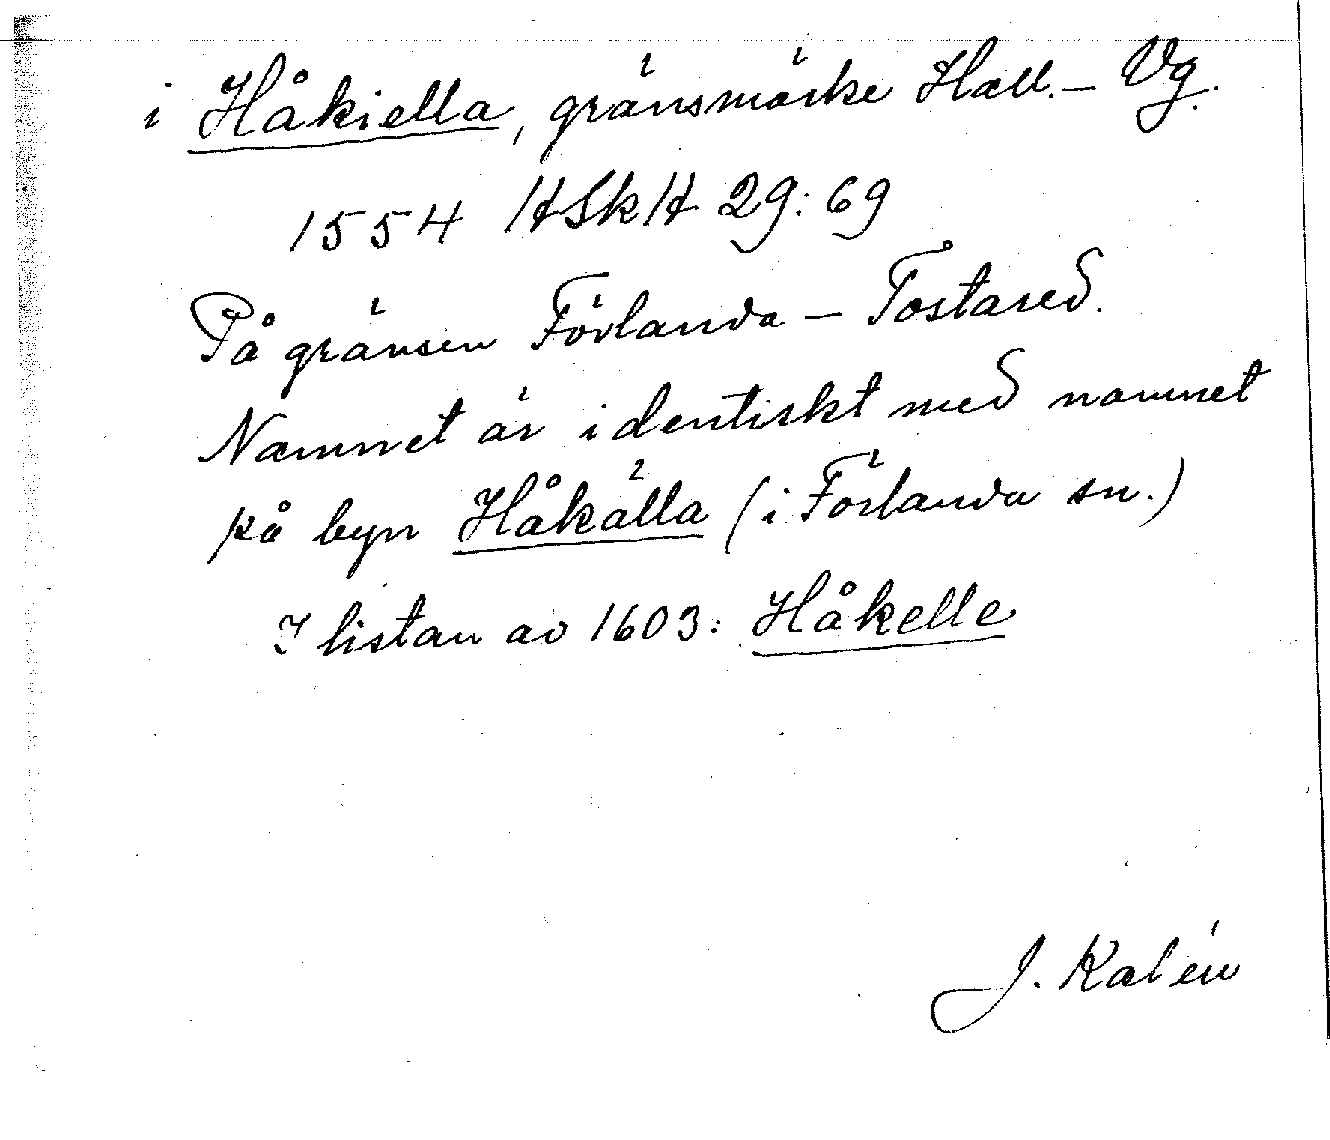 i Håkiella, gränsmärke Hall. – Vg.
1554 HSkH 29: 69
På gränsen Förlanda – Tostared.
Namnet är identiskt med namnet
på byn Håkälla (i Förlanda sn.)
I listan av 1603: Håkelle
J. Kalén